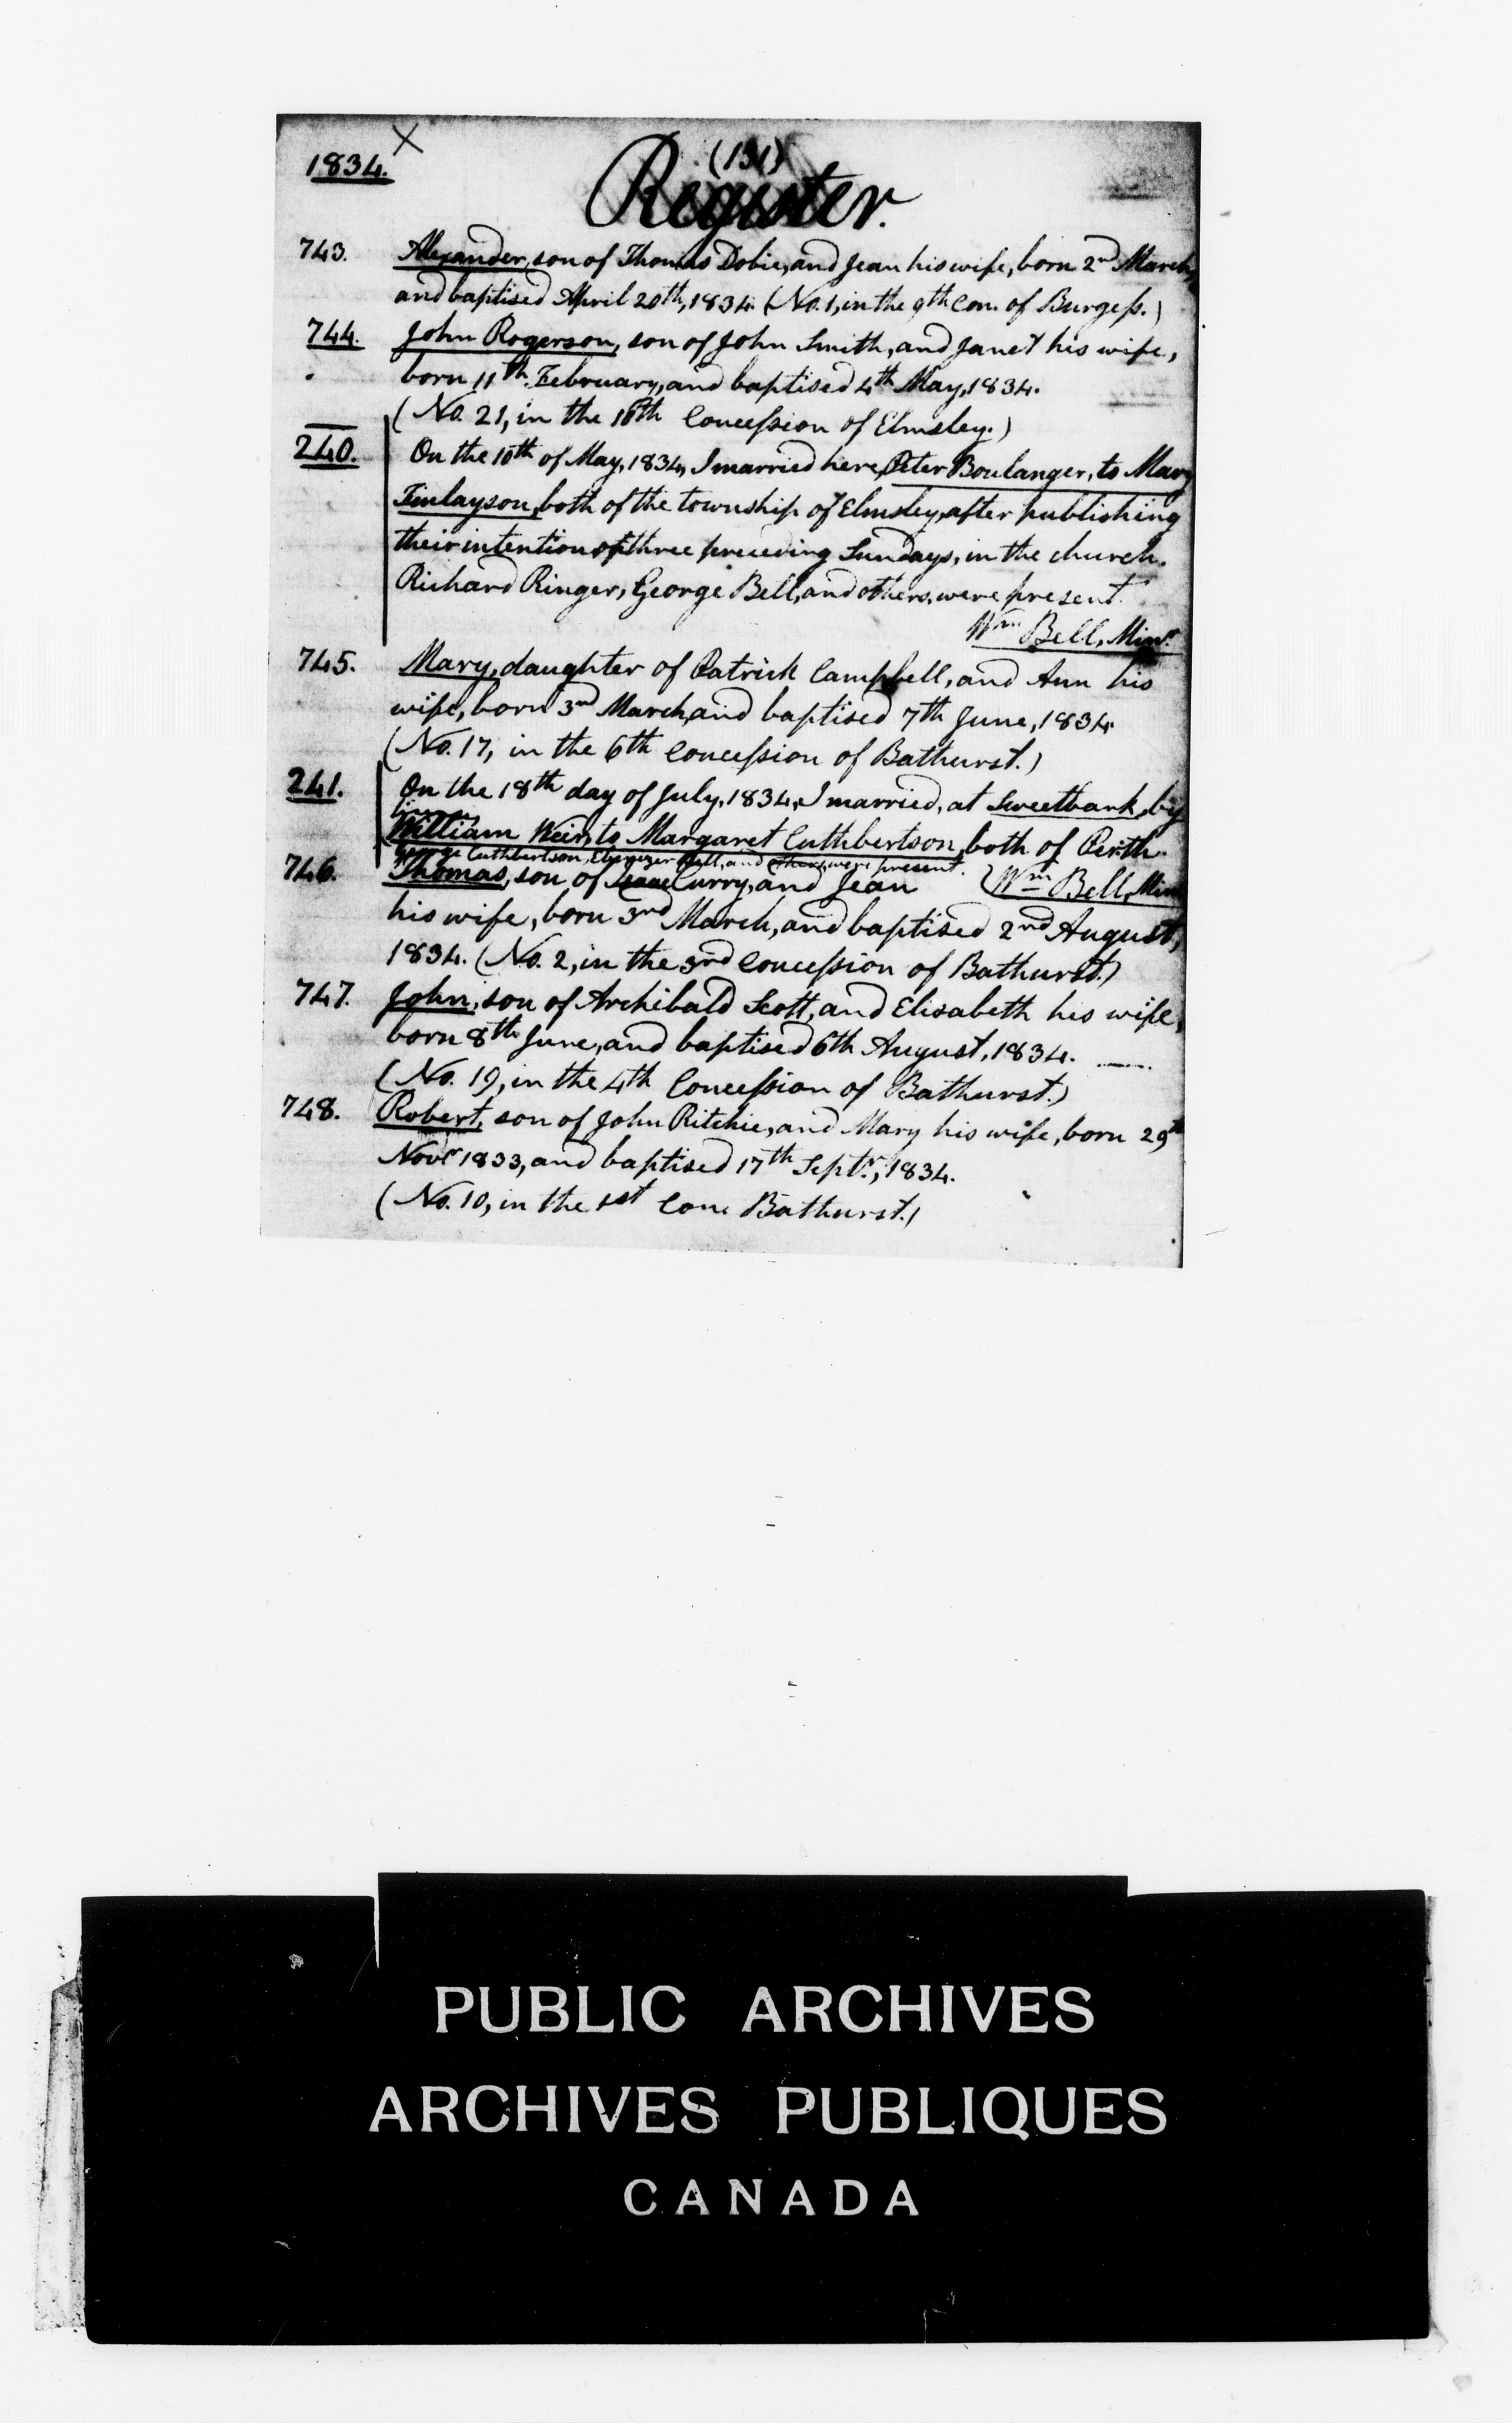 1834. X
(131)
Register.
743. Alexander, son of Thomas Dobie, and Jean his wife, born 2nd March,
and baptised April 20th, 1834. (No. 1, in the 9th Con. of Burgess.)
744. John Rogerson, son of John Smith, and Janet his wife,
born 11th February, and baptised 4th May, 1834.
(No. 21, in the 10th Concession of Elmsley.)
240. On the 10th of May, 1834, I married here, Peter Boulanger, to Mary
Finlayson, both of the township of Elmsley, after publishing
their intention three preceding Sundays, in the church.
Richard Ringer, George Bell, and others, were present.
Wm Bell, Minr.
745. Mary, daughter of Patrick Campbell, and Ann his
wife, born 3rd March, and baptised 7th June, 1834.
(No. 17, in the 6th Concession of Bathurst.)
241. On the 18th day of July, 1834, I married, at Sweetbank, by
license,
William Weir, to Margaret Cuthbertson, both of Perth.
George Cuthbertson, Ebenezer Bell, and others, were present.
746. Thomas, son of Isaac Curry, and Jean Wm Bell, Min
his wife, born 3rd March, and baptised 2nd August,
1834. (No. 2, in the 3rd Concession of Bathurst.)
747. John, son of Archibald Scott, and Elisabeth his wife,
born 8th June, and baptised 6th August, 1834.
(No. 19, in the 4th Concession of Bathurst.)
748. Robert, son of John Ritchie, and Mary his wife, born 29th
Novr 1833, and baptised 17th Septr., 1834.
(No. 10, in the 1st Con. Bathurst.)
PUBLIC ARCHIVES
ARCHIVES PUBLIQUES
CANADA